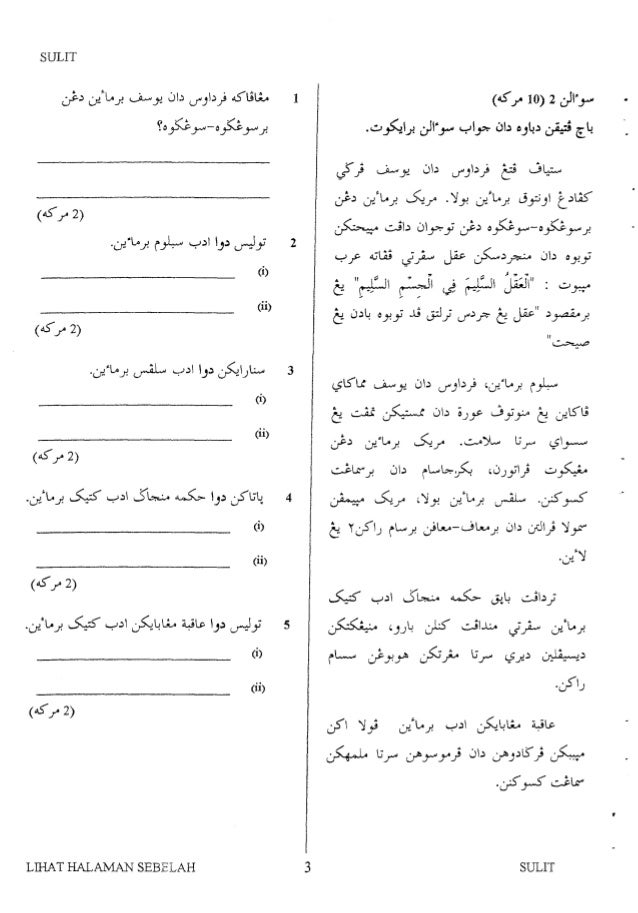 SULIT
سوءالن 2 (10 مركه)
باچ ڤتيقن دباوه دان جواب سوءالن برايكوت.
ستياڤ ڤتڠ فرداوس دان يوسف ڤرڬي
كڤادڠ اونتوق برماءين بولا. مريک برماءين دڠن
برسوڠݢوه-سوڠݢوه دڠن توجوان داڤت مڽيحتكن
توبوه دان منچردسكن عقل سڤرتي ڤڤاته عرب
مڽبوت : "الْعَقْلُ السَّلِيمَ فِي الْجِسْمِ السَّلِيمِ" يڠ
برمقصود "عقل يڠ چردس ترلتق ڤد توبوه بادن يڠ
صيحت"
سبلوم برماءين، فرداوس دان يوسف مماكاي
ڤاكاين يڠ منوتوڤ عورة دان ممستيكن تمڤت يڠ
سسواي سرتا سلامت. مريک برماءين دڠن
مڠيكوت ڤراتورن، بكرجاسام دان برسماڠت
كسوكنن. سلڤس برماءين بولا، مريک مڽيمڤن
سمولا ڤرالتن دان برمعاف-معافن برسام راكن٢ يڠ
لاءين.
تردڤت باڽق حكمه منجاݢ ادب كتيک
برماءين سڤرتي منداڤت كنلن بارو، منيڠكتكن
ديسيڤلين ديري سرتا مڠرتكن هوبوڠن سسام
راكن.
عاقبة مڠابايكن ادب برماءين ڤولا اكن
مڽببكن ڤركادوهن دان ڤرموسوهن سرتا ملمهكن
سماڠت كسوكنن.
1 مڠاڤاكه فرداوس دان يوسف برماءين دڠن
برسوڠݢوه-سوڠݢوه؟
(2 مركه)
2 توليس دوا ادب سبلوم برماءين.
(i)
(ii)
(2 مركه)
3 سنارايكن دوا ادب سلڤس برماءين.
(i)
(ii)
(2 مركه)
4 ڽاتاكن دوا حكمه منجاݢ ادب كتيک برماءين.
(i)
(ii)
(2 مركه)
5 توليس دوا عاقبة مڠابايكن ادب كتيک برماءين.
(i)
(ii)
(2 مركه)
LIHAT HALAMAN SEBELAH 3 SULIT